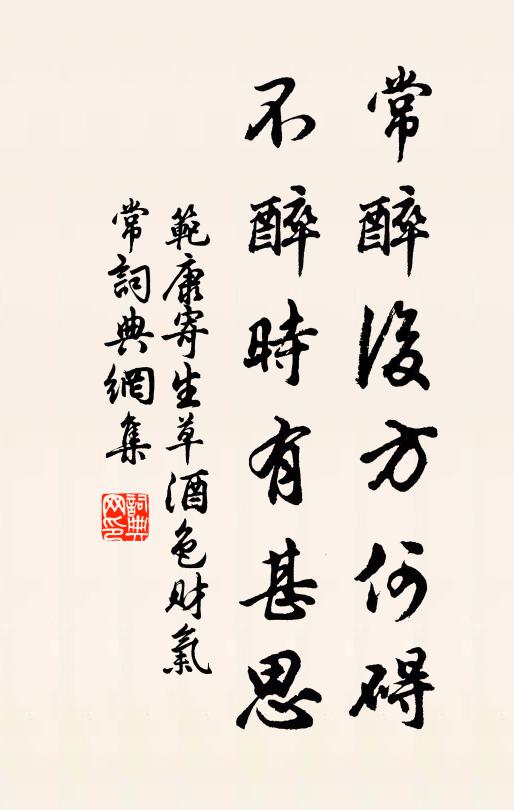 常醉後方何礙
不醉時有甚思
範康寄生草酒色財氣
常詞典網集
詞典网印